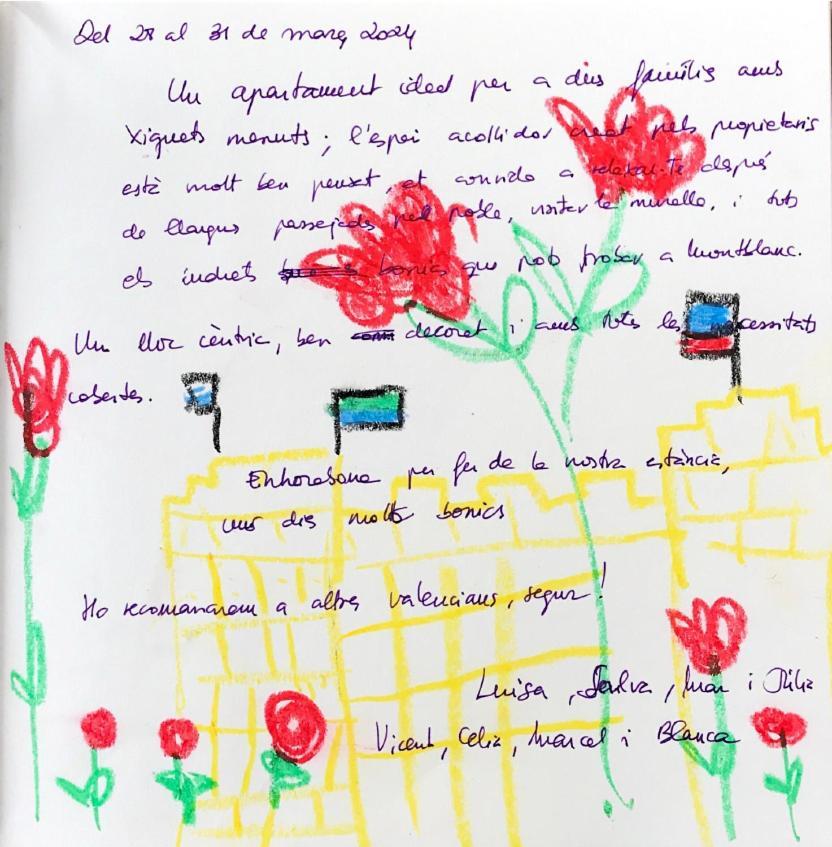 Del 28 al 31 de març 2024
Un apartament ideal per a dies familis amb
xiquets menuts; l'espai acollidor creat pels propietaris
està molt ben pensat, et convida a relaxar-te després
de llargues passejades pel poble, visitar la muralla, i tots
els indrets bonics que pots trobar a Montblanc.
Un lloc cèntric, ben decorat i amb totes les necessitats
cobertes.
Enhorabona per fer de la nostra estància,
uns dies molts bonics
Ho recomanarem a altres valencians, segur!
Luisa, Salva, Mar i
Vicent, Celia, Marcel i Blanca